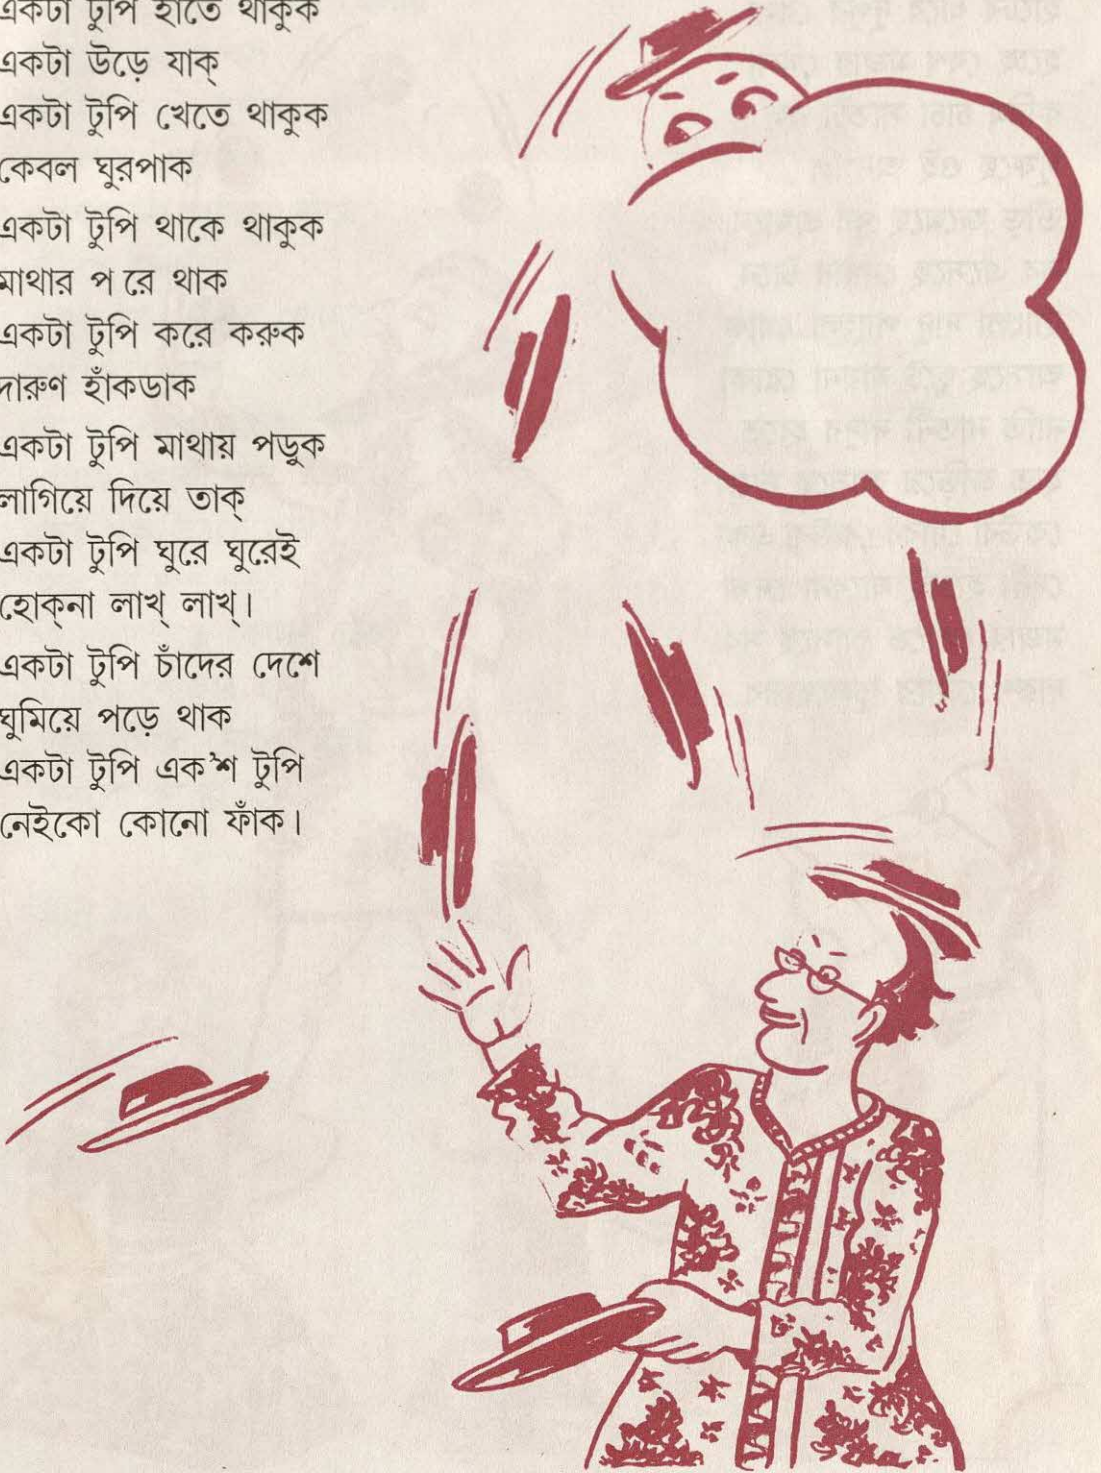 একটা টুপি হাতে থাকুক
একটা উড়ে যাক্
একটা টুপি খেতে থাকুক
কেবল ঘুরপাক
একটা টুপি থাকে থাকুক
মাথার প রে থাক
একটা টুপি করে করুক
দারুণ হাঁকডাক
একটা টুপি মাথায় পড়ুক
লাগিয়ে দিয়ে তাক্
একটা টুপি ঘুরে ঘুরেই
হোক্‌না লাখ্ লাখ্।
একটা টুপি চাঁদের দেশে
ঘুমিয়ে পড়ে থাক
একটা টুপি এক'শ টুপি
নেইকো কোনো ফাঁক।